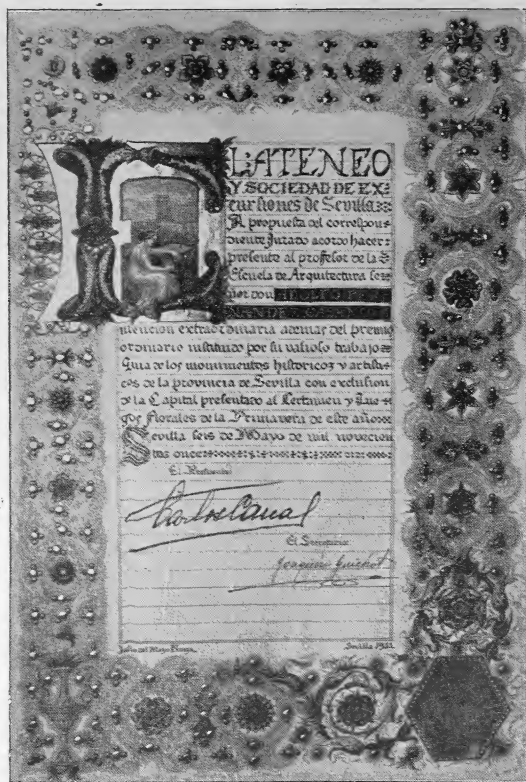 EL ATENEO
Y SOCIEDAD DE EX
cursiones de Sevilla
A propuesta del correspon
diente Jurado acordó hacer
presente al profesor de la
Escuela de Arquitectura se
ñor don
mención extraordinaria además del premio
ordinario instituido por su valioso trabajo
Guía de los monumentos históricos y artísti
cos de la provincia de Sevilla con exclusión
de la Capital presentado al Certamen y Jue
gos florales de la Primavera de este año
Sevilla seis de Mayo de mil novecien
tos once
El Presidente
Carlos Cañal
El Secretario
Joaquín Guichot
Sevilla 1911